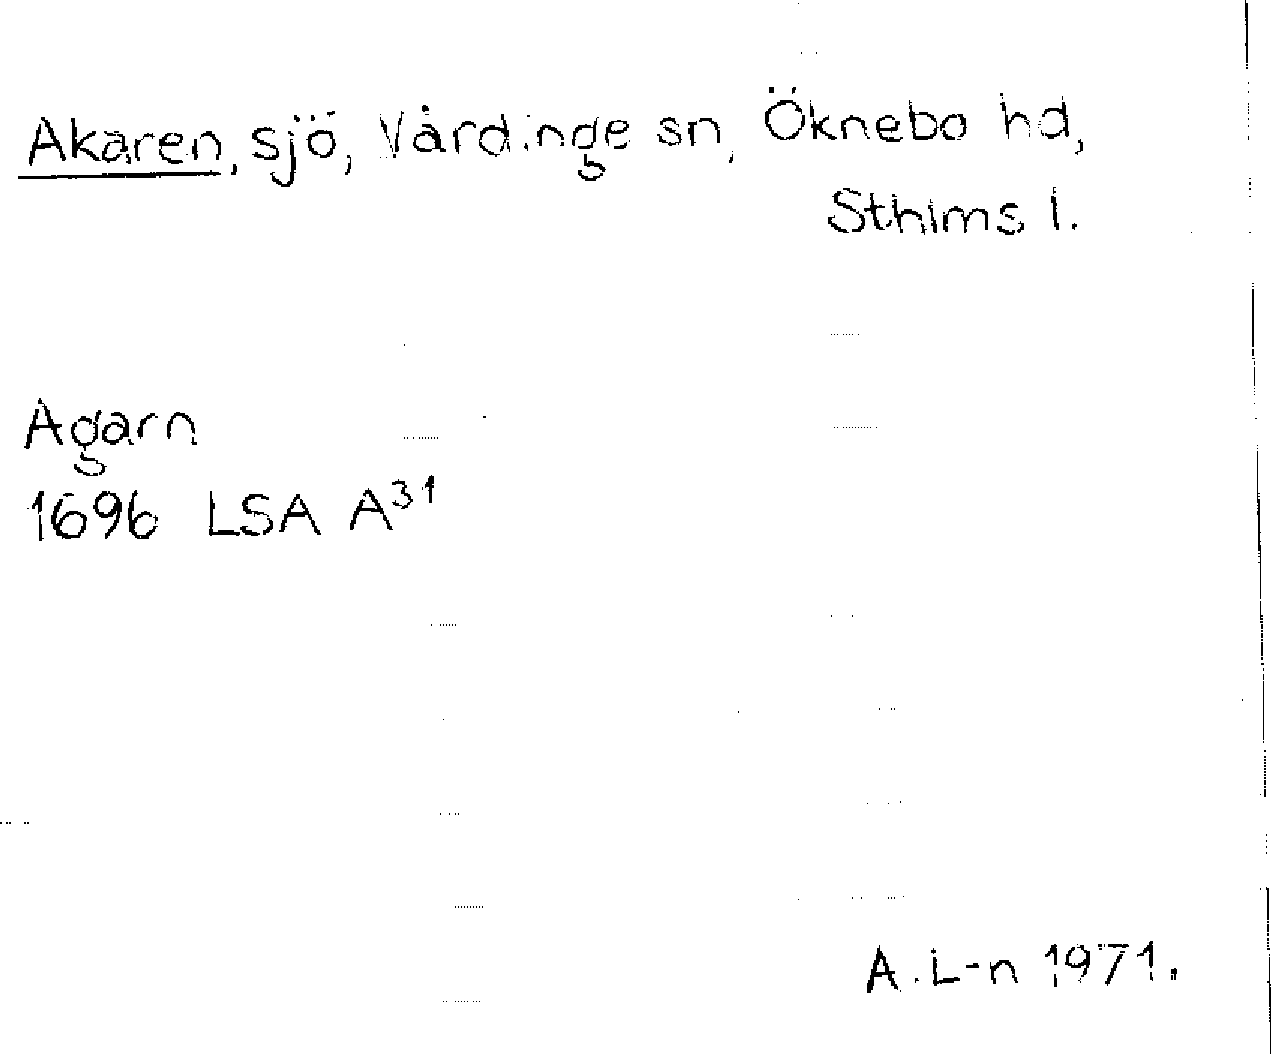 Akaren, sjö, Vårdinge sn, Öknebo hd,
Sthlms l.
Agarn
1696 LSA A³¹
A.L-n 1971.